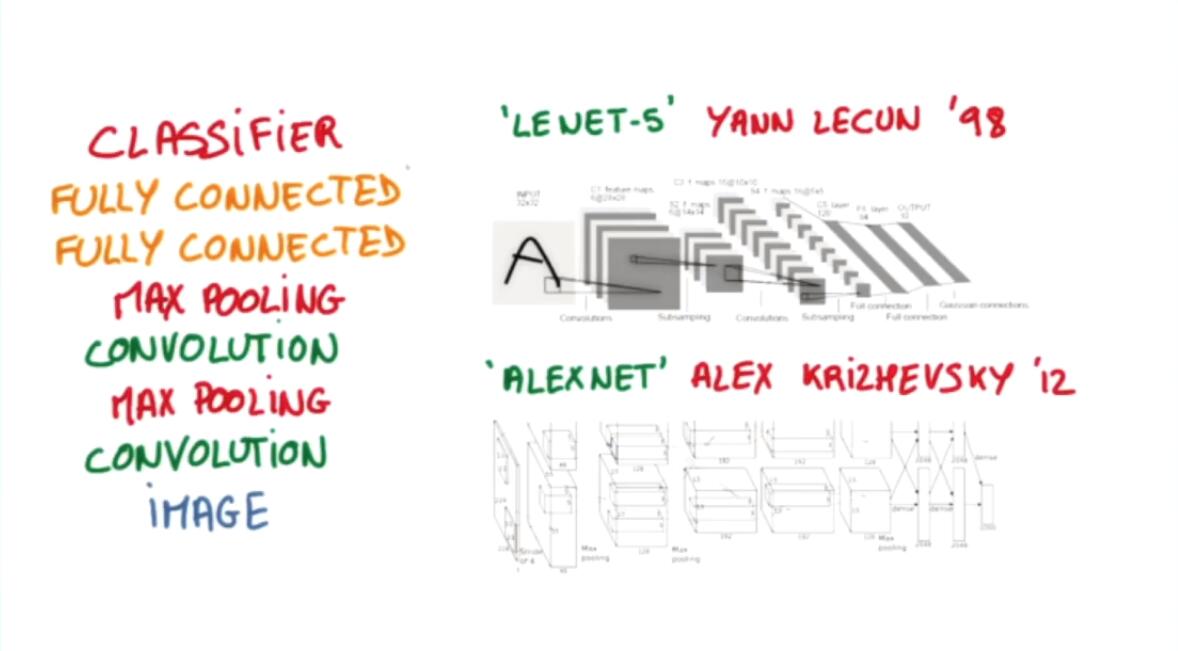 CLASSIFIER
FULLY CONNECTED
FULLY CONNECTED
MAX POOLING
CONVOLUTION
MAX POOLING
CONVOLUTION
IMAGE
'LENET-5' YANN LECUN '98
INPUT
32x32
C1: feature maps
6@28x28
C3: f. maps 16@10x10
S4: f. maps 16@5x5
S2: f. maps
6@14x14
C5: layer
120
F6: layer
84
OUTPUT
10
A
Convolutions
Subsampling
Convolutions
Subsampling
Full connection
Full connection
Gaussian connections
'ALEXNET' ALEX KRIZHEVSKY '12
48
128
192
192
128
2048
2048
dense
dense
dense
Stride
of 4
Max
pooling
Max
pooling
Max
pooling
48
128
192
192
128
2048
2048